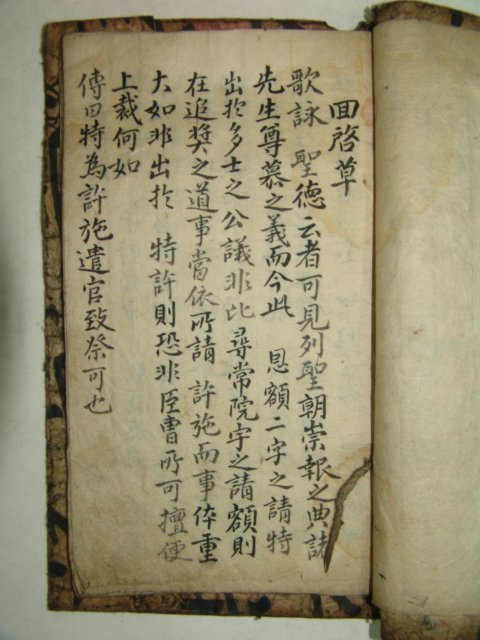 回啓草
歌詠 聖德云者可見列聖朝崇報之典諸
先生尊慕之義而今此 恩額二字之請特
出於多士之公議非比尋常院宇之請額則
在追奬之道事當依所請 許施而事体重
大如非出於 特許則恐非臣曹所可擅便
上裁何如
傳曰特為許施遣官致祭可也